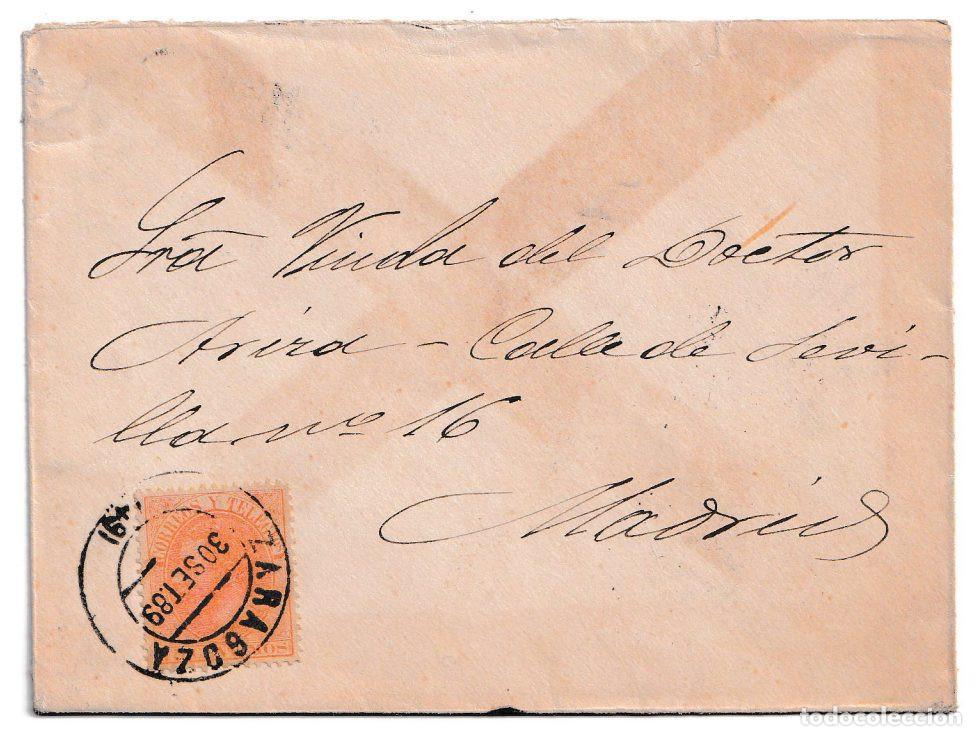 Sra Viuda del Doctor
Arira - Calle de Sevi-
lla nº 16
Madrid
CORREOS Y TELEG
ZARAGOZA
30 SET. 89
todocoleccion